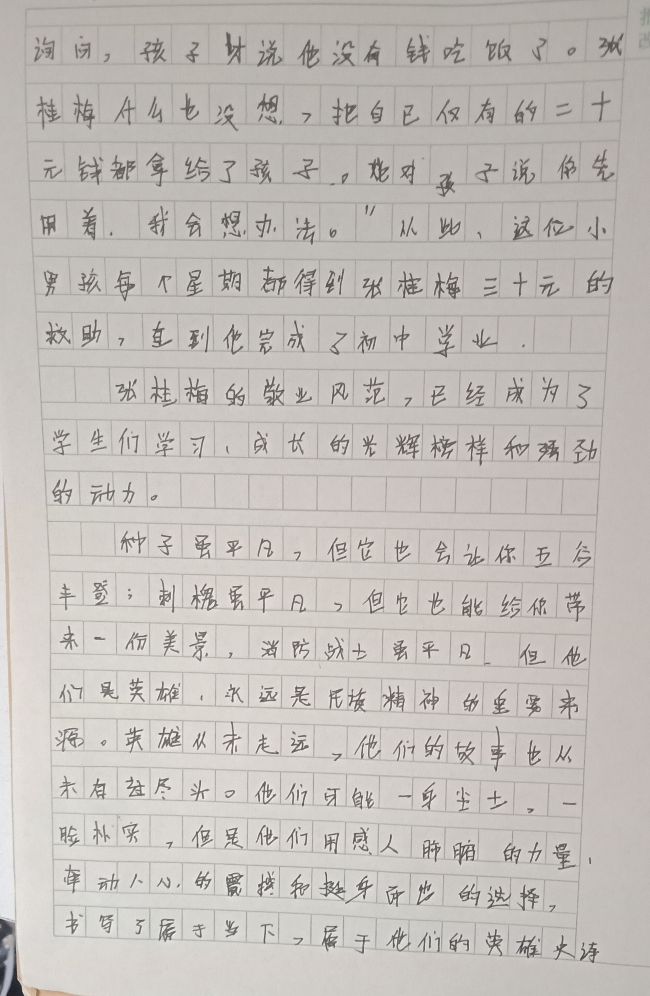 询问，孩子才说他没有钱吃饭了。张
桂梅什么也没想，把自已仅有的二十
元钱都拿给了孩子。她对孩子说你先
用着，我会想办法。”从此、这位小
男孩每个星期都得到张桂梅三十元的
救助，直到他完成了初中学业．
张桂梅的敬业风范，已经成为了
学生们学习、成长的光辉榜样和强劲
的动力。
种子虽平凡，但它也会让你五谷
丰登；刺槐虽平凡，但它也能给你带
来一份美景，消防战士虽平凡．但他
们是英雄．永远是民族精神的重要来
源。英雄从未走远，他们的故事也从
未有过尽头。他们可能一身尘土，一
脸朴实，但是他们用感人肺腑的力量、
牵动人心的震撼和挺身而出的选择，
书写了属于当下，属于他们的英雄史诗